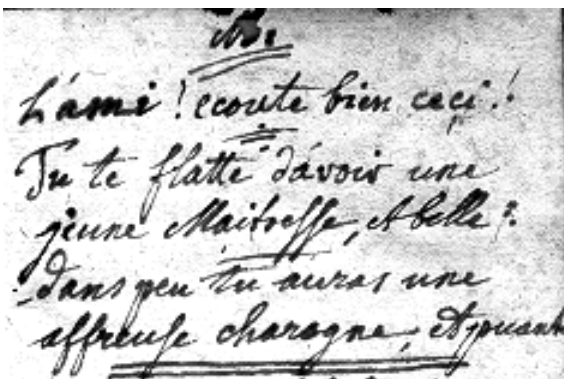 L'ami ! ecoute bien ceci !
Tu te flatte d'avoir une
jeune Maitresse, et belle ?
dans peu tu auras une
affreuse charogne, et puant